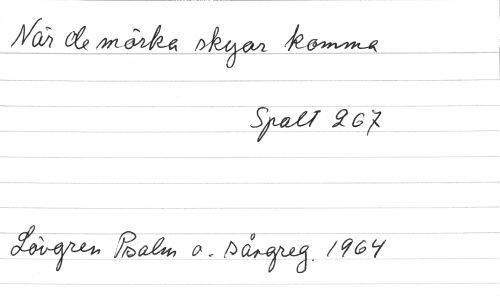 När de mörka skyar komma
Spalt 267
Lövgren Psalm o. sångreg. 1964